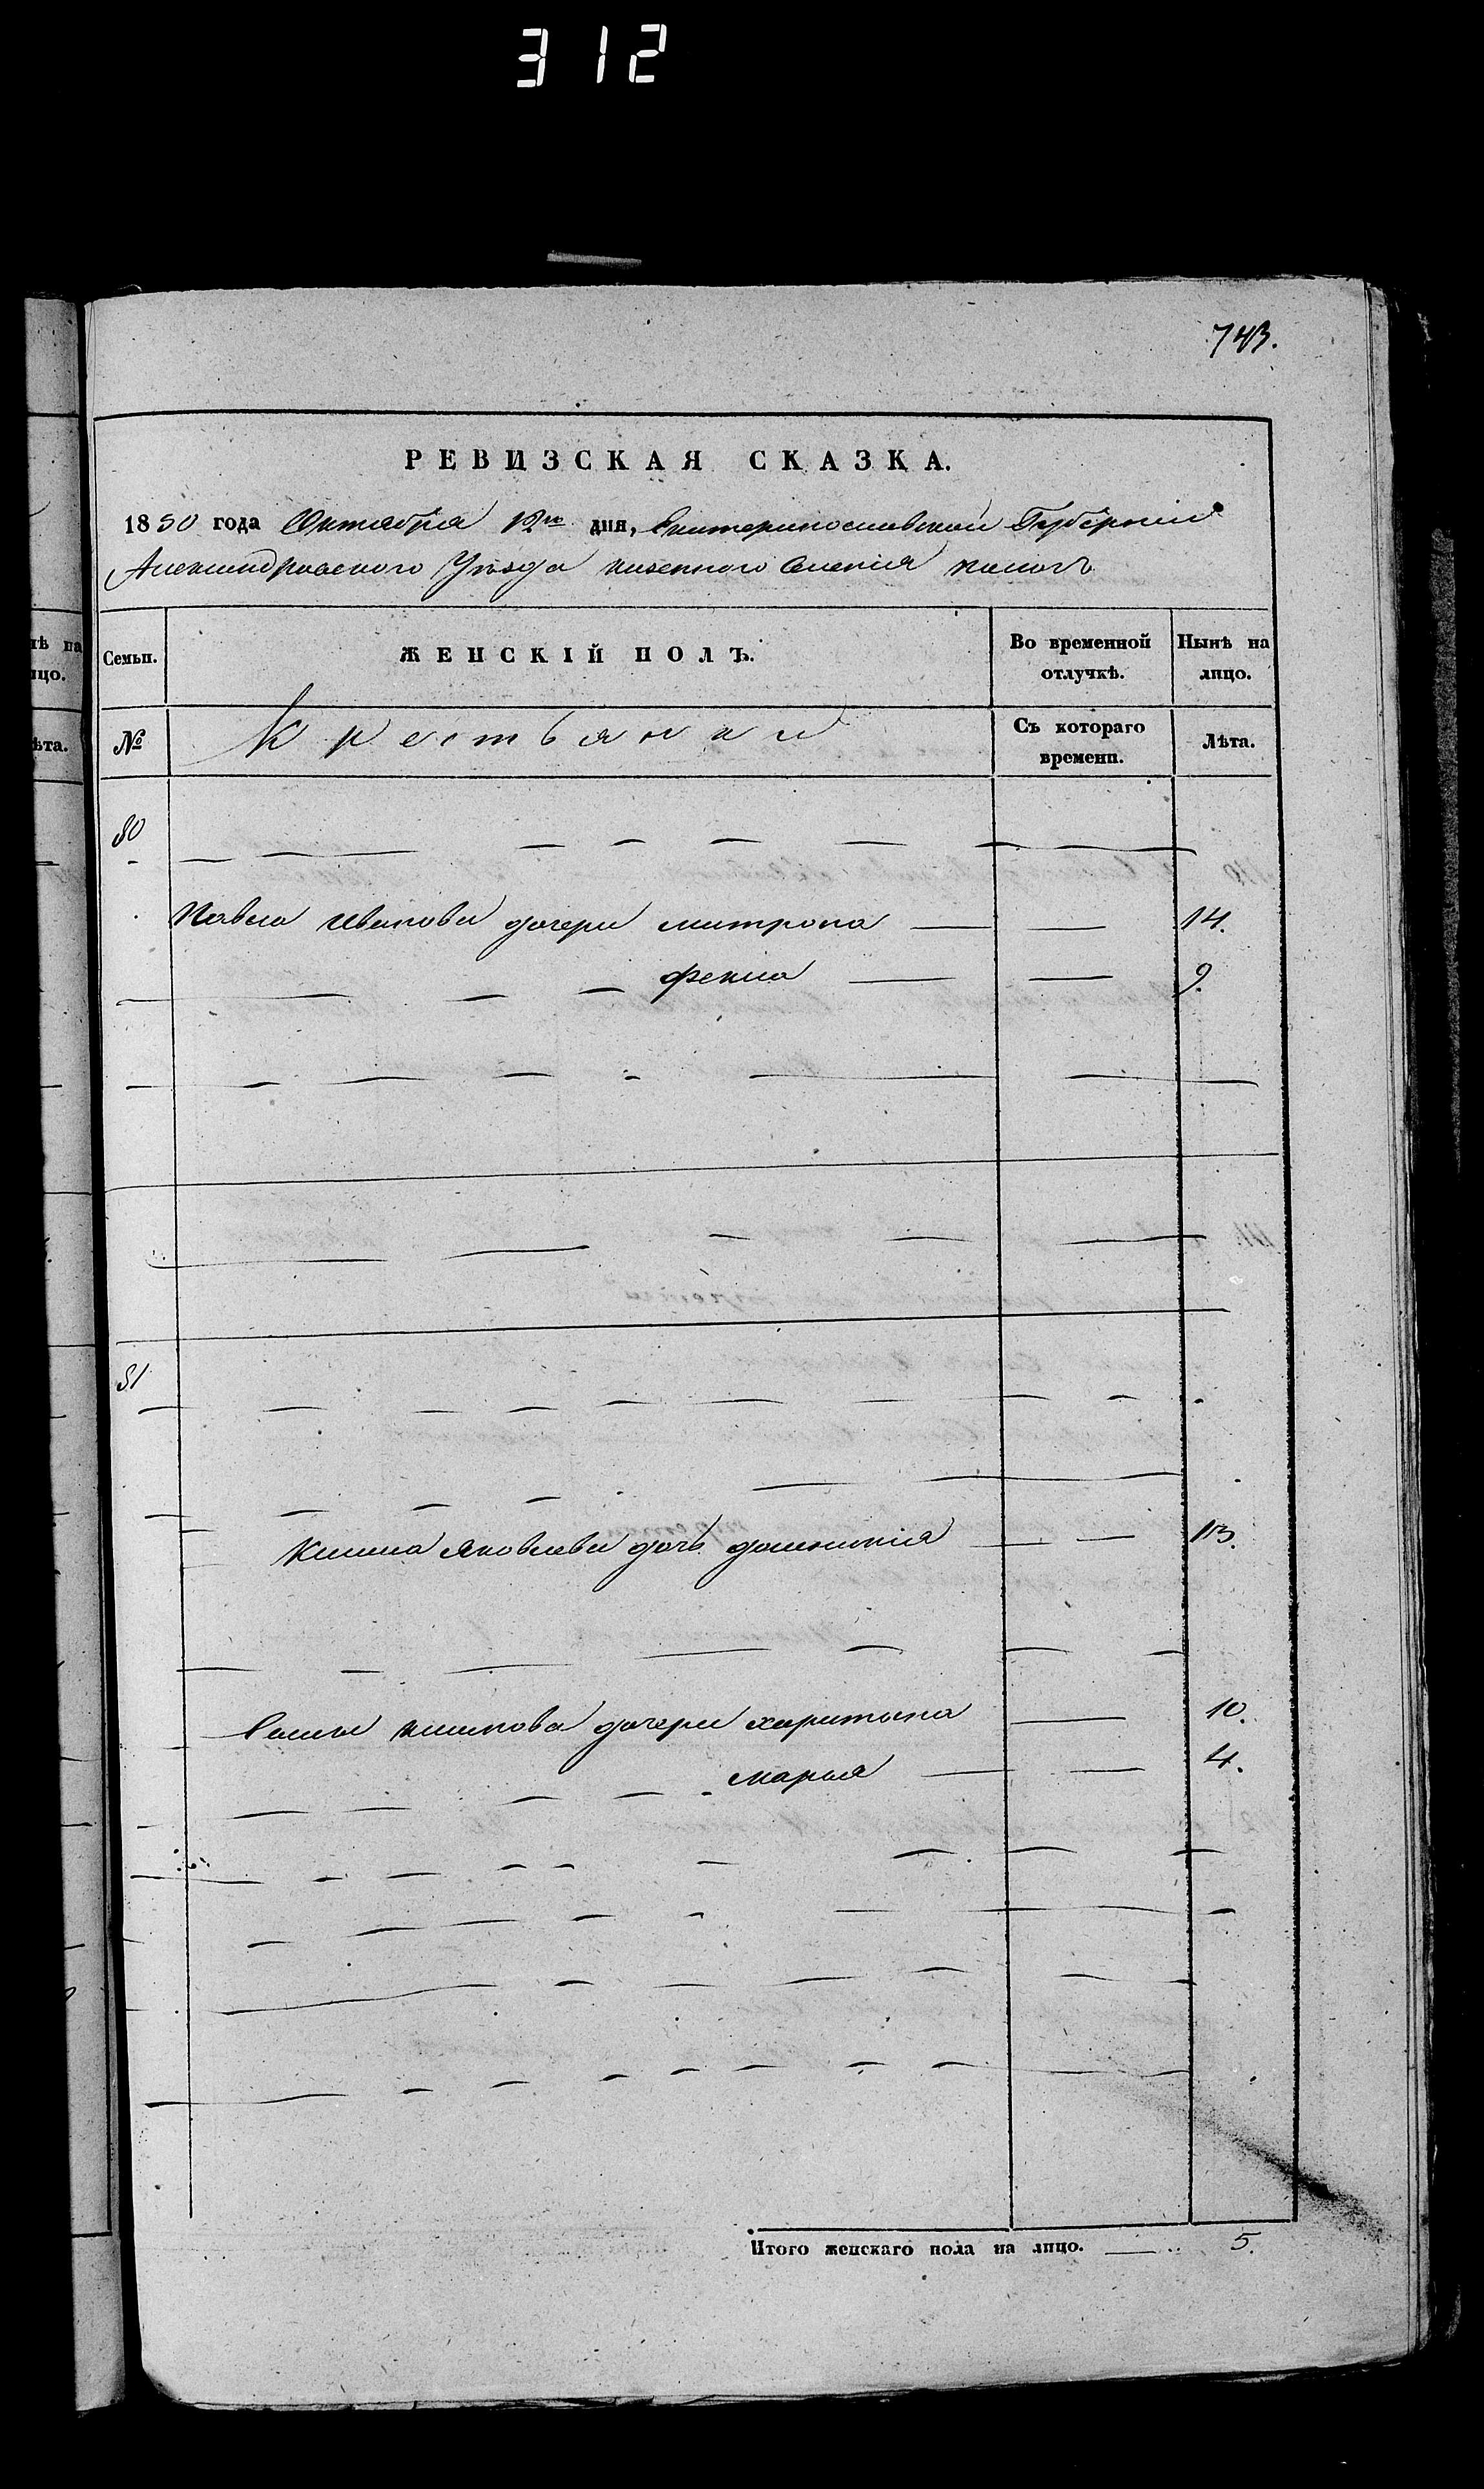 312
743.
РЕВИЗСКАЯ СКАЗКА.
1850 года Октября 12го дня, Екатеринославской Губернии
Александровского Уезда казенного Селения
Семьи. ЖЕНСКІЙ ПОЛЪ. Во временной отлучкѣ. Нынѣ на лицо.
№ Крестьянки Съ котораго времени. Лѣта.
80
Павла Иванова дочери митрона 14.
фекла 9.
81
Клима Яковлева дочь домникія 13.
дочери харитына 10.
марья 4.
Итого женскаго пола на лицо. 5.